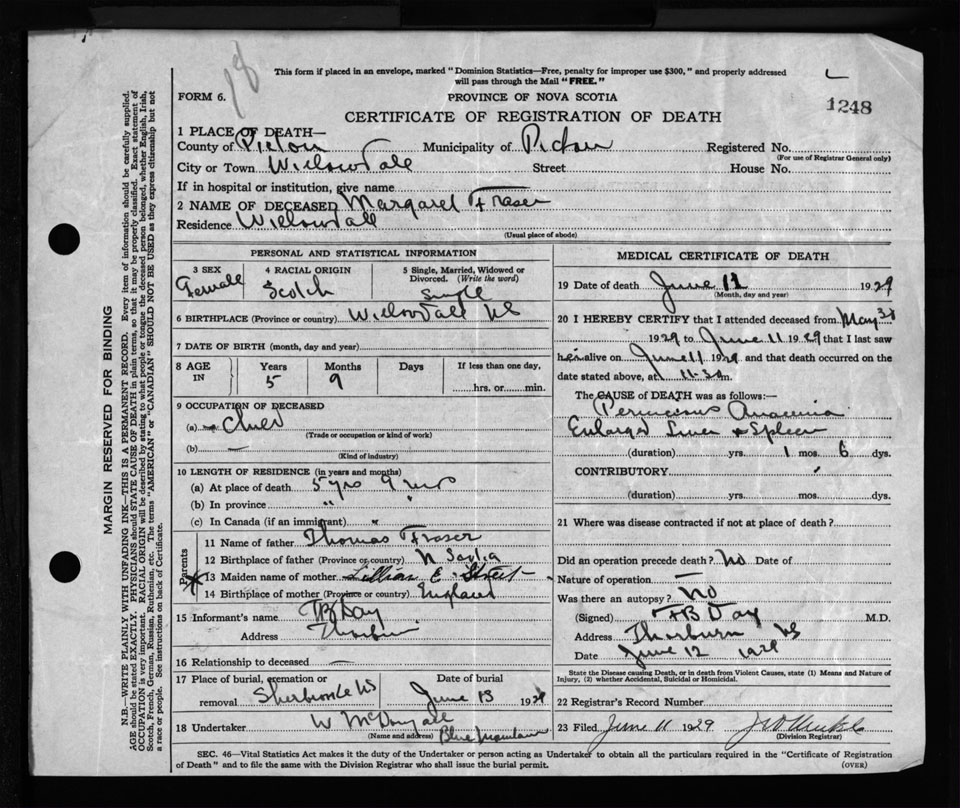 18
This form if placed in an envelope, marked "Dominion Statistics—Free, penalty for improper use $300," and properly addressed
will pass through the Mail "FREE."
FORM 6.
PROVINCE OF NOVA SCOTIA
1248
CERTIFICATE OF REGISTRATION OF DEATH
1 PLACE OF DEATH—
County of Pictou Municipality of Pictou Registered No.
(For use of Registrar General only)
City or Town Willowdale Street House No.
If in hospital or institution, give name
2 NAME OF DECEASED Margaret Fraser
Residence Willowdale
(Usual place of abode)
PERSONAL AND STATISTICAL INFORMATION
3 SEX 4 RACIAL ORIGIN 5 Single, Married, Widowed or
Divorced. (Write the word)
Female Scotch Single
6 BIRTHPLACE (Province or country) Willowdale NS
7 DATE OF BIRTH (month, day and year)
8 AGE IN Years Months Days If less than one day,
5 9 hrs. or min.
9 OCCUPATION OF DECEASED
(a) Child
(Trade or occupation or kind of work)
(b) —
(Kind of industry)
10 LENGTH OF RESIDENCE (in years and months)
(a) At place of death 5 yrs 9 mos
(b) In province " "
(c) In Canada (if an immigrant) "
Parents
11 Name of father Thomas Fraser
12 Birthplace of father (Province or country) N Scotia
13 Maiden name of mother Lillian E Street
14 Birthplace of mother (Province or country) England
15 Informant's name FB Day
Address Thorburn
16 Relationship to deceased —
17 Place of burial, cremation or Date of burial
removal Sherbrooke NS June 13 1929
18 Undertaker W McDougall
(Name and address) Blue Mountain
MEDICAL CERTIFICATE OF DEATH
19 Date of death June 11 1929
(Month, day and year)
20 I HEREBY CERTIFY that I attended deceased from May 30
1929 to June 11 1929 that I last saw
her alive on June 11 1929 and that death occurred on the
date stated above, at 11-30 m.
The CAUSE of DEATH was as follows:—
Pernicious Anaemia
Enlarged Liver & Spleen
(duration) yrs. 1 mos. 6 dys.
CONTRIBUTORY
(duration) yrs. mos. dys.
21 Where was disease contracted if not at place of death?
Did an operation precede death? No Date of
Nature of operation —
Was there an autopsy? No
(Signed) FB Day M.D.
Address Thorburn NS
Date June 12 1929
State the Disease causing Death, or in death from Violent Causes, state (1) Means and Nature of
Injury, (2) whether Accidental, Suicidal or Homicidal.
22 Registrar's Record Number
23 Filed June 11 1929
(Division Registrar)
SEC. 46—Vital Statistics Act makes it the duty of the Undertaker or person acting as Undertaker to obtain all the particulars required in the "Certificate of Registration
of Death" and to file the same with the Division Registrar who shall issue the burial permit. (OVER)
MARGIN RESERVED FOR BINDING
N.B.—WRITE PLAINLY WITH UNFADING INK—THIS IS A PERMANENT RECORD. Every item of information should be carefully supplied.
AGE should be stated EXACTLY. PHYSICIANS should STATE CAUSE OF DEATH in plain terms, so that it may be properly classified. Exact statement of
OCCUPATION is very important. RACIAL ORIGIN will be described by stating to what people or tongue the deceased person belonged, whether English, Irish,
Scotch, French, German, Russian, Ruthenian, etc. The terms "AMERICAN" or "CANADIAN" SHOULD NOT BE USED as they express citizenship but not
a race or people. See instructions on back of Certificate.